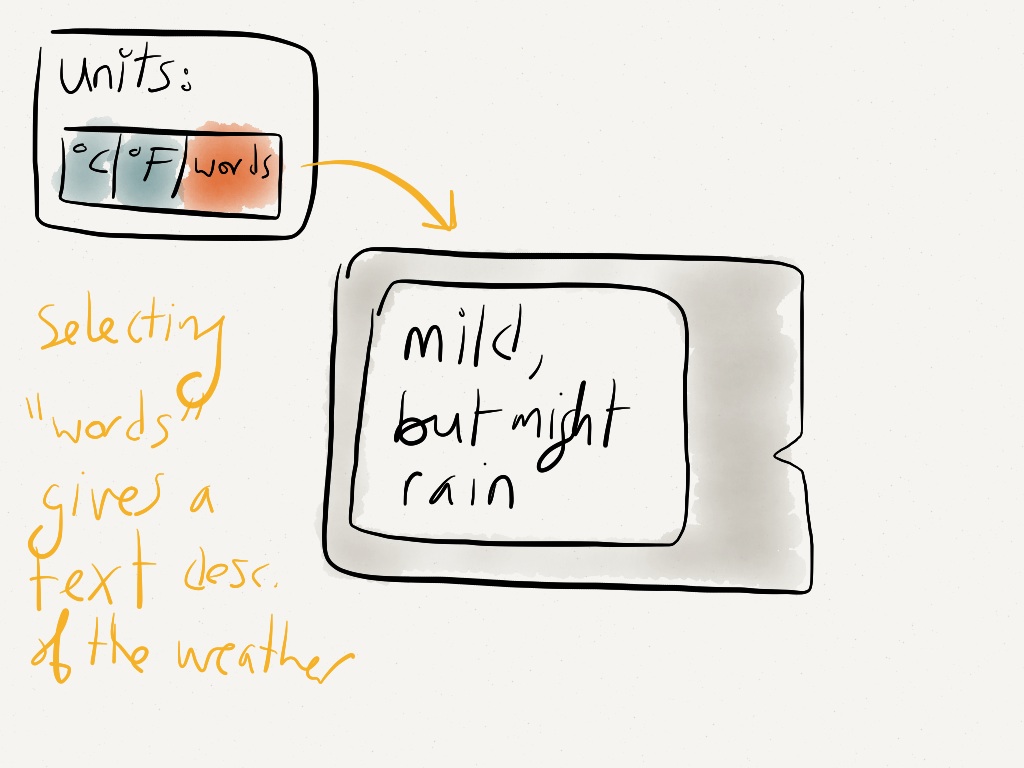 units:
°C °F words
mild,
but might
rain
Selecting
"words"
gives a
text desc.
of the weather